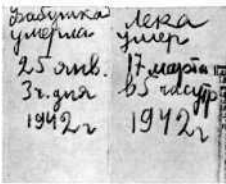 Бабушка
умерла
25 янв.
3 ч. дня
1942 г
Лека
умер
17 марта
в 5 час утр
1942 г